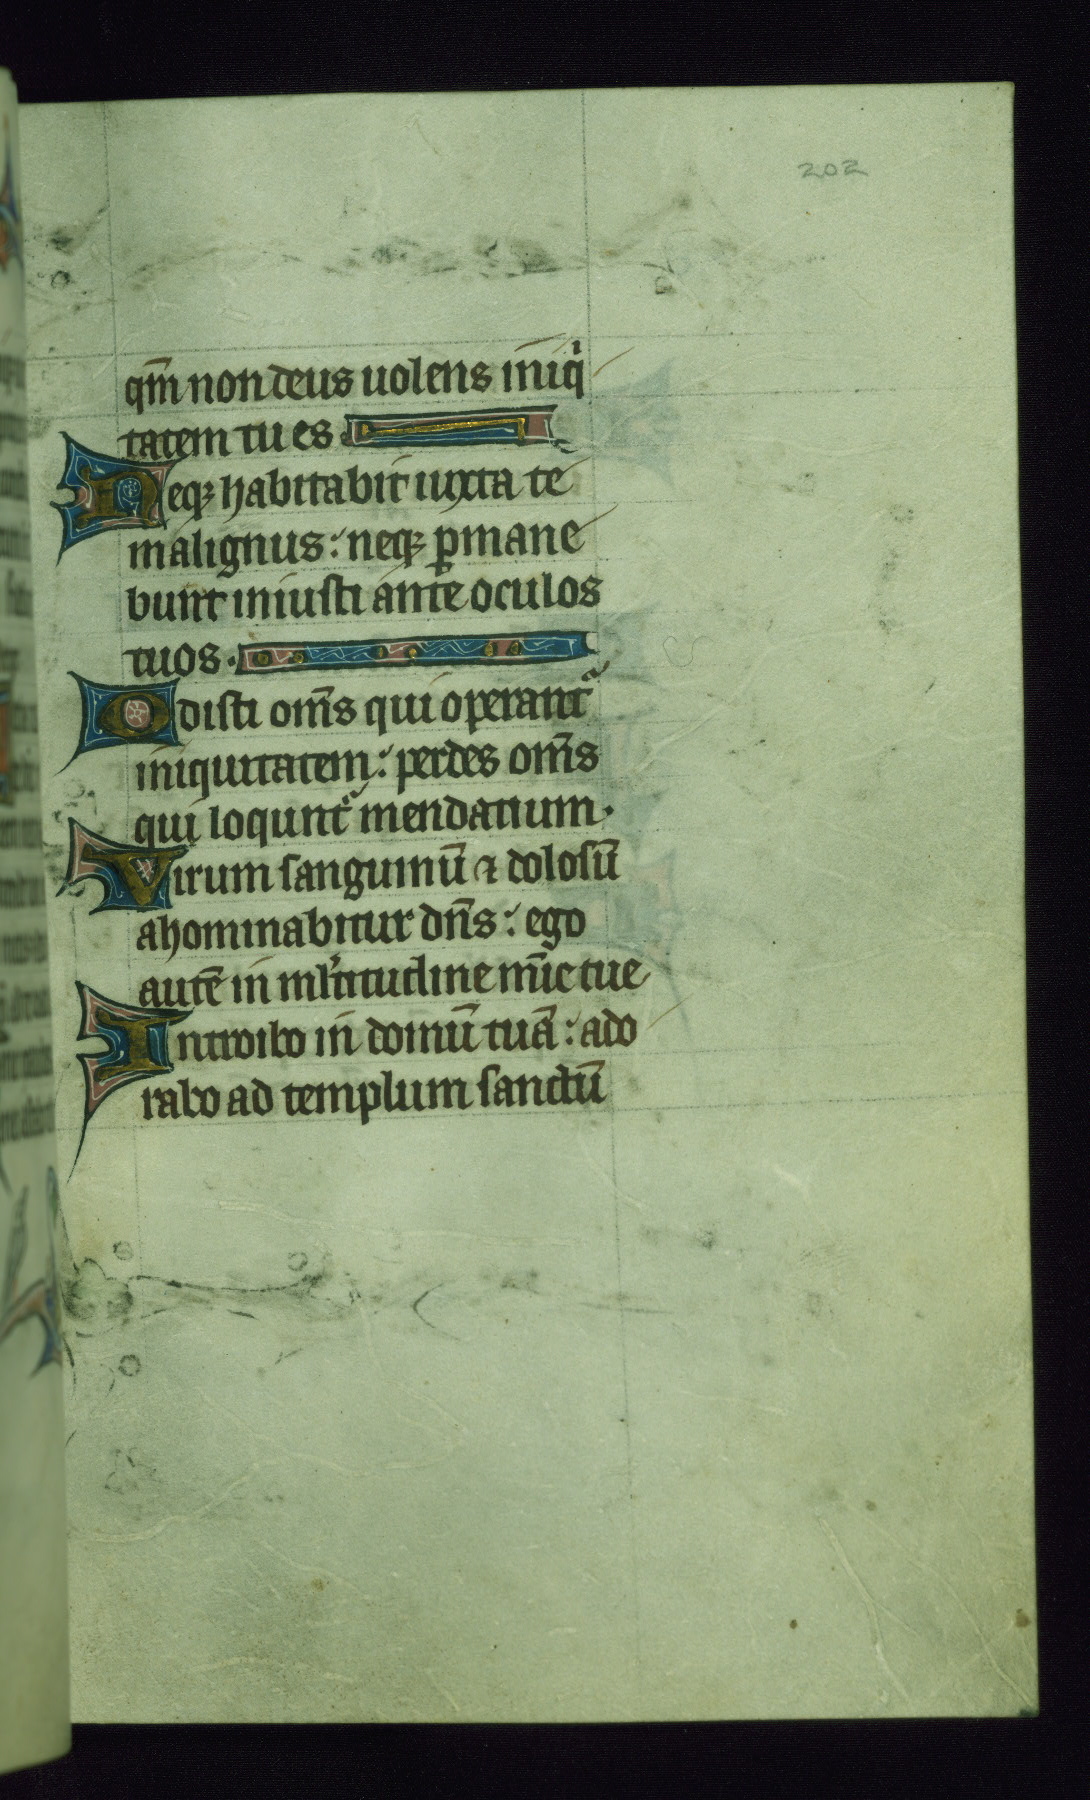 202
qm̄ non deus uolens iniqⁱ
tatem tu es
Neqꝫ habitabit iuxta te
malignus: neqꝫ ꝑmane
bunt iniusti ante oculos
tuos.
Odisti om̄s qui operant᷑
iniquitatem: perdes om̄s
qui loqunt᷑ mendatium.
Virum sanguinū ⁊ dolosū
ahominabitur dn̄s: ego
autē in ml̄titudine mīe tue
Introibo in domū tuā: ado
rabo ad templum sanctū